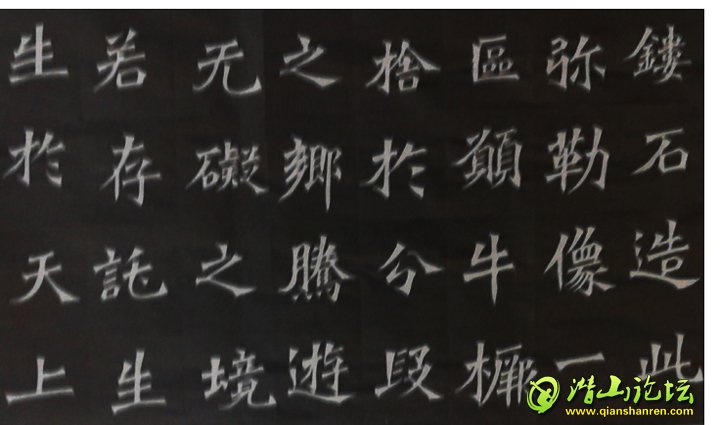 鏤石造此
弥勒像一
區願牛橛
捨於分段
之鄉騰遊
无礙之境
若存託生
生於天上
潜山论坛
www.qianshanren.com